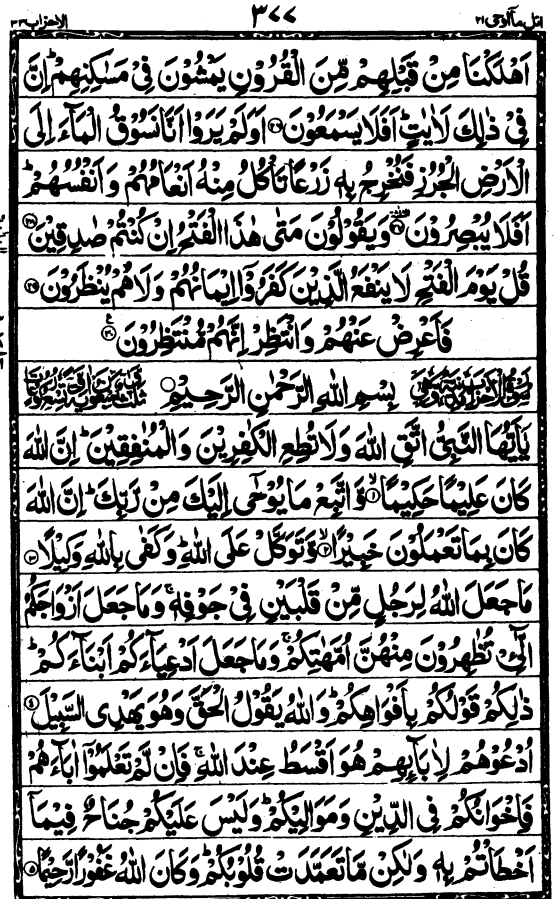 اتل ما اوحی ۲۱ ۳۷۷ الاحزاب ۳۳
اَهْلَكْنَا مِنْ قَبْلِهِمْ مِّنَ الْقُرُوْنِ يَمْشُوْنَ فِيْ مَسٰكِنِهِمْ ؕ اِنَّ
فِيْ ذٰلِكَ لَاٰيٰتٍ ؕ اَفَلَا يَسْمَعُوْنَ ﴿۲۶﴾ اَوَلَمْ يَرَوْا اَنَّا نَسُوْقُ الْمَآءَ اِلَى
الْاَرْضِ الْجُرُزِ فَنُخْرِجُ بِهٖ زَرْعًا تَاْكُلُ مِنْهُ اَنْعَامُهُمْ وَاَنْفُسُهُمْ ؕ
اَفَلَا يُبْصِرُوْنَ ﴿۲۷﴾ وَيَقُوْلُوْنَ مَتٰى هٰذَا الْفَتْحُ اِنْ كُنْتُمْ صٰدِقِيْنَ ﴿۲۸﴾
قُلْ يَوْمَ الْفَتْحِ لَا يَنْفَعُ الَّذِيْنَ كَفَرُوْٓا اِيْمَانُهُمْ وَلَا هُمْ يُنْظَرُوْنَ ﴿۲۹﴾
فَاَعْرِضْ عَنْهُمْ وَانْتَظِرْ اِنَّهُمْ مُّنْتَظِرُوْنَ ﴿۳۰﴾
بِسْمِ اللّٰهِ الرَّحْمٰنِ الرَّحِيْمِ
يٰٓاَيُّهَا النَّبِيُّ اتَّقِ اللّٰهَ وَلَا تُطِعِ الْكٰفِرِيْنَ وَالْمُنٰفِقِيْنَ ؕ اِنَّ اللّٰهَ
كَانَ عَلِيْمًا حَكِيْمًا ﴿۱﴾ وَّاتَّبِعْ مَا يُوْحٰٓى اِلَيْكَ مِنْ رَّبِّكَ ؕ اِنَّ اللّٰهَ
كَانَ بِمَا تَعْمَلُوْنَ خَبِيْرًا ﴿۲﴾ وَّتَوَكَّلْ عَلَى اللّٰهِ ؕ وَكَفٰى بِاللّٰهِ وَكِيْلًا ﴿۳﴾
مَا جَعَلَ اللّٰهُ لِرَجُلٍ مِّنْ قَلْبَيْنِ فِيْ جَوْفِهٖ ۚ وَمَا جَعَلَ اَزْوَاجَكُمُ
الّٰٓـِٔيْ تُظٰهِرُوْنَ مِنْهُنَّ اُمَّهٰتِكُمْ ۚ وَمَا جَعَلَ اَدْعِيَآءَكُمْ اَبْنَآءَكُمْ ؕ
ذٰلِكُمْ قَوْلُكُمْ بِاَفْوَاهِكُمْ ؕ وَاللّٰهُ يَقُوْلُ الْحَقَّ وَهُوَ يَهْدِى السَّبِيْلَ ﴿۴﴾
اُدْعُوْهُمْ لِاٰبَآئِهِمْ هُوَ اَقْسَطُ عِنْدَ اللّٰهِ ۚ فَاِنْ لَّمْ تَعْلَمُوْٓا اٰبَآءَهُمْ
فَاِخْوَانُكُمْ فِي الدِّيْنِ وَمَوَالِيْكُمْ ؕ وَلَيْسَ عَلَيْكُمْ جُنَاحٌ فِيْمَآ
اَخْطَاْتُمْ بِهٖ وَلٰكِنْ مَّا تَعَمَّدَتْ قُلُوْبُكُمْ ؕ وَكَانَ اللّٰهُ غَفُوْرًا رَّحِيْمًا ﴿۵﴾